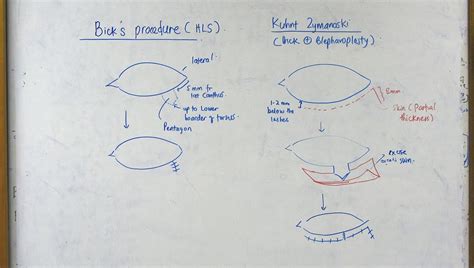 Bick's procedure (HLS)
lateral
5mm fr
lat Canthus.
up to Lower
boarder of tarsus.
Pentagon
Kuhnt Zymanoski
(Bick ⊕ Blepharoplasty)
1-2 mm
below the
lashes
8mm
Skin (Partial
thickness)
excise
skin